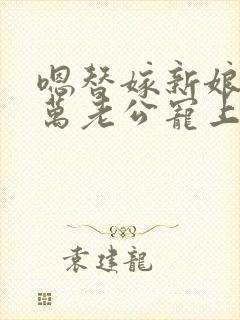 嗯替嫁新娘
萬老公寵上
袁建龍